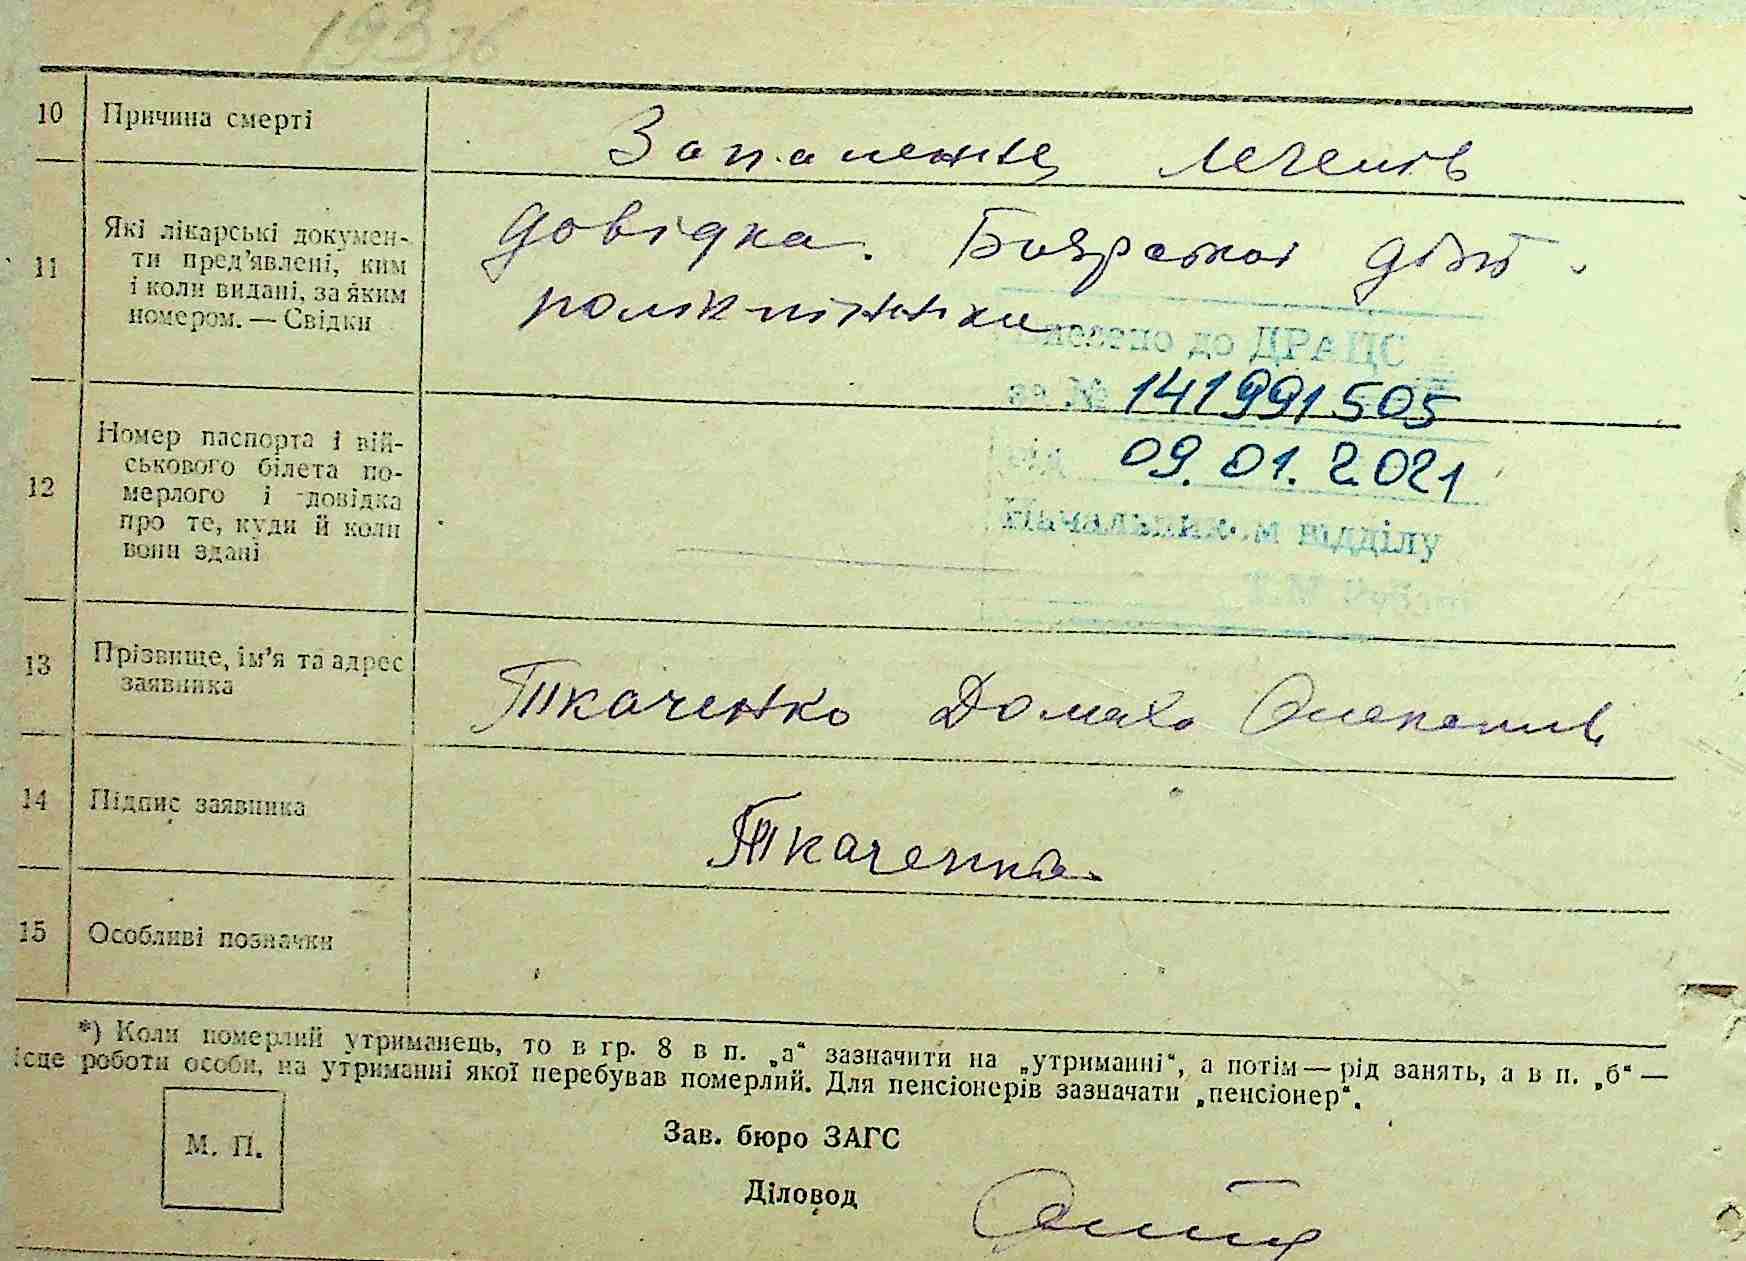 10 Причина смерті
Запалення легенів
11 Які лікарські докумен-
ти пред'явлені, ким
і коли видані, за яким
номером. — Свідки
довідка. Боярської
поліклініки
Внесено до ДРАЦС
за № 141991505
від 09.01.2021
Начальником відділу
12 Номер паспорта і вій-
ськового білета по-
мерлого і довідка
про те, куди й коли
вони здані
13 Прізвище, ім'я та адрес
заявника
Ткаченко Домаха
14 Підпис заявника
Ткаченко
15 Особливі позначки
*) Коли померлий утриманець, то в гр. 8 в п. „а“ зазначити на „утриманні“, а потім — рід занять, а в п. „б“ —
ісце роботи особи, на утриманні якої перебував померлий. Для пенсіонерів зазначати „пенсіонер“.
М. П.
Зав. бюро ЗАГС
Діловод